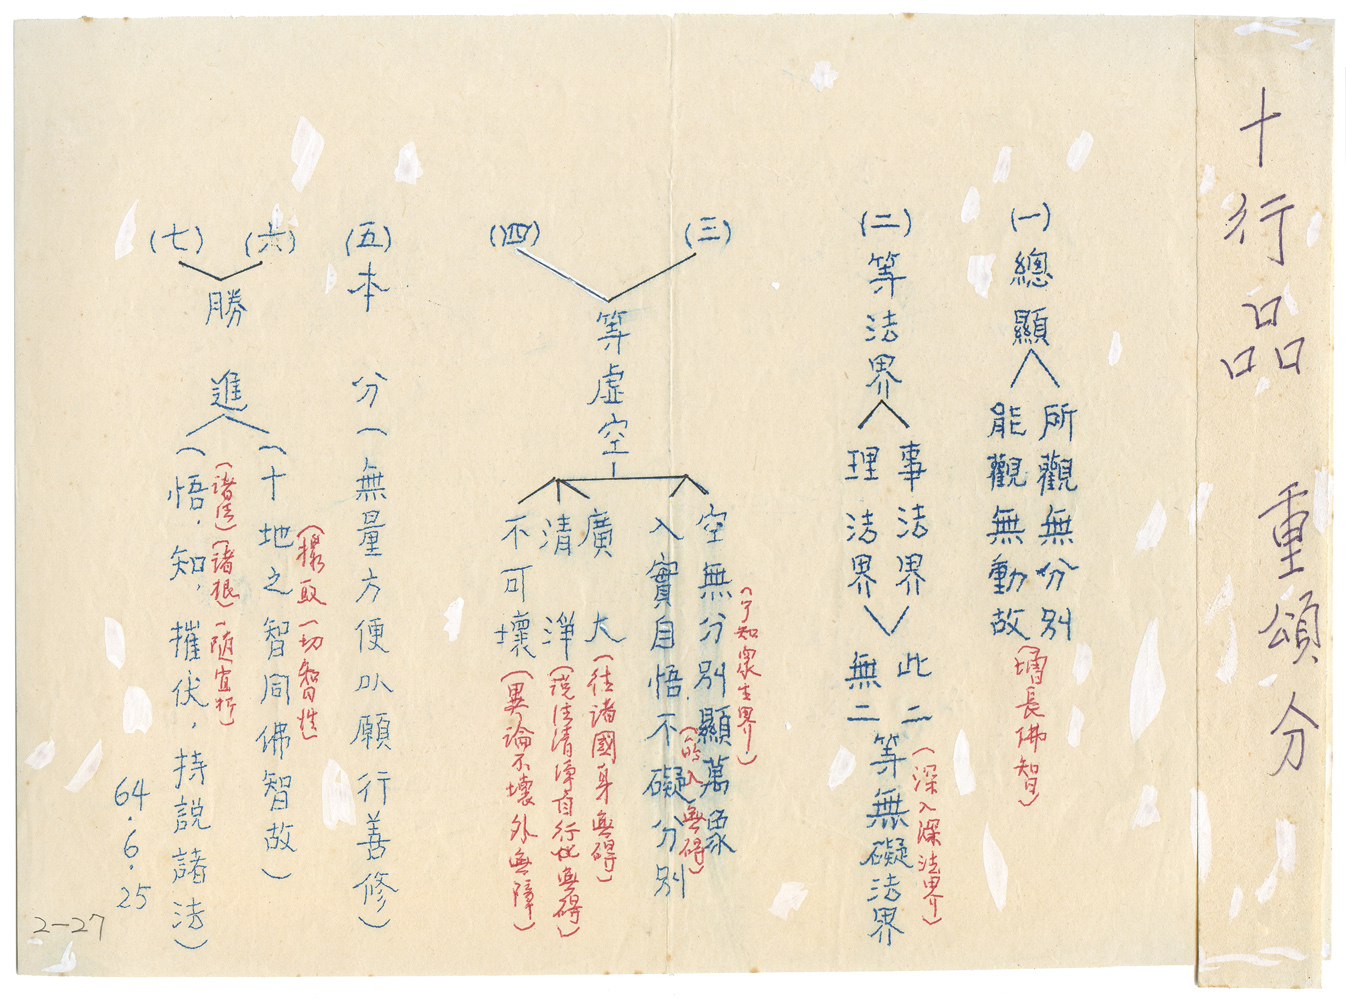 十行品 重頌分
(一)總顯
所觀無分別
能觀無動故
(增長佛智)
(二)等法界
事法界
理法界
此二
無二
等無礙法界
(深入深法界)
(三)
(四)
等虛空
空無分別顯萬象
(了知眾生界)
入實自悟不礙分別
無碍)
廣大
(往諸國身無碍)
清淨
(說法清淨自行化無碍)
不可壞
(異論不壞外無障)
(五)本分(無量方便以願行善修)
(六)
(七)
勝進
(十地之智同佛智故)
(攝取一切智性)
(悟,知,摧伏,持說諸法)
(諸法)(諸根)(隨宜行)
64.6.25
2-27